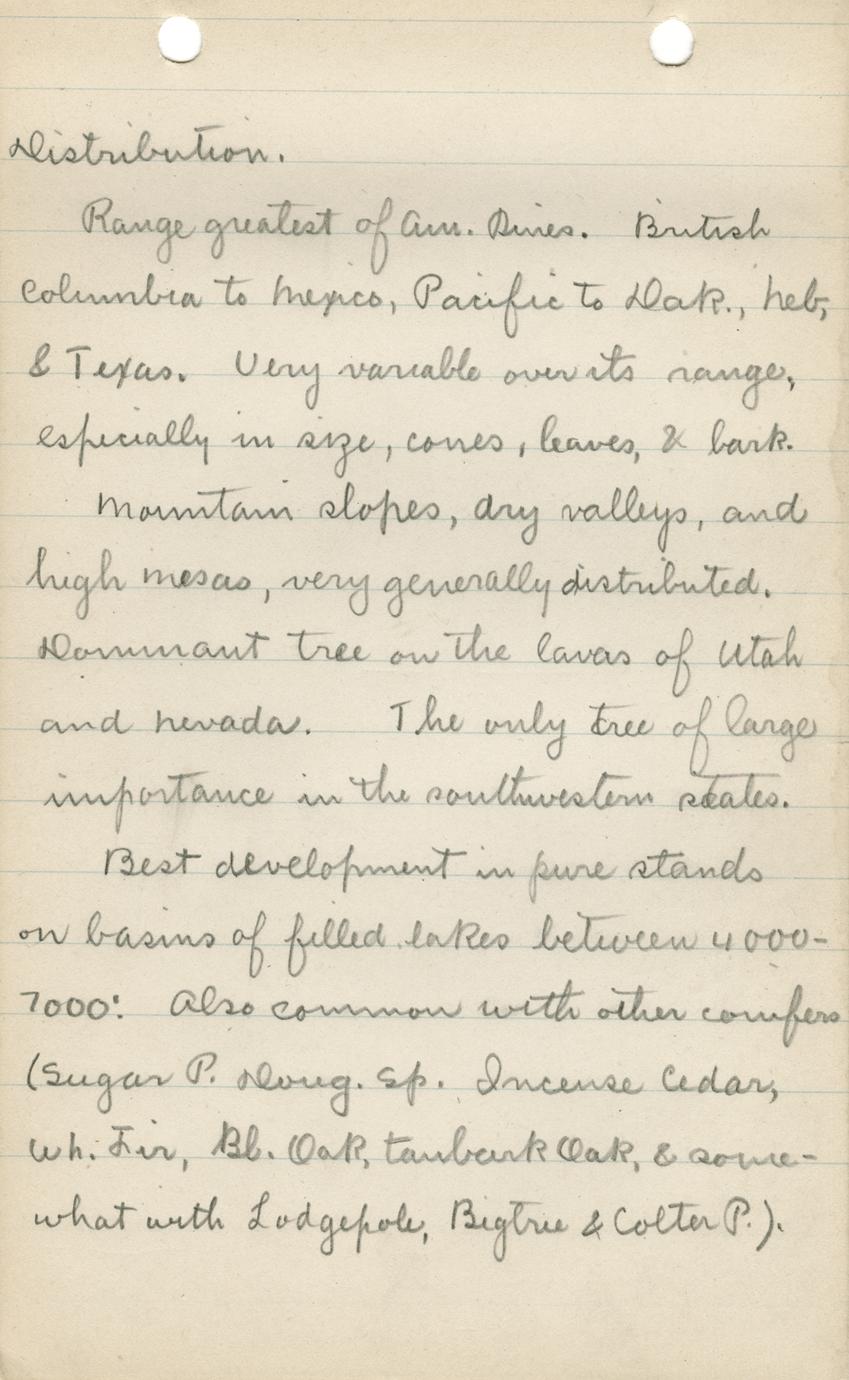 Distribution.
Range greatest of Am. Pines. British
Columbia to Mexico, Pacific to Dak., Neb.,
& Texas. Very variable over its range,
especially in size, cones, leaves, & bark.
Mountain slopes, dry valleys, and
high mesas, very generally distributed.
Dominant tree on the lavas of Utah
and Nevada. The only tree of large
importance in the southwestern states.
Best development in pure stands
on basins of filled lakes between 4000-
7000'. Also common with other conifers
(Sugar P. Doug. Sp. Incense Cedar,
Wh. Fir, Bl. Oak, tanbark Oak, & some-
what with Lodgepole, Bigtree & Colter P.).